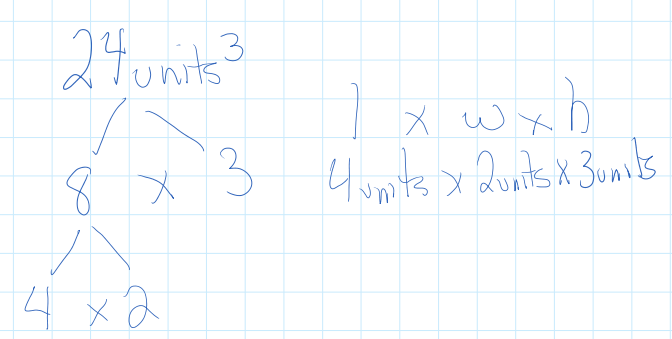 24 units³
8 x 3
4 x 2
l x w x h
4 units x 2 units x 3 units